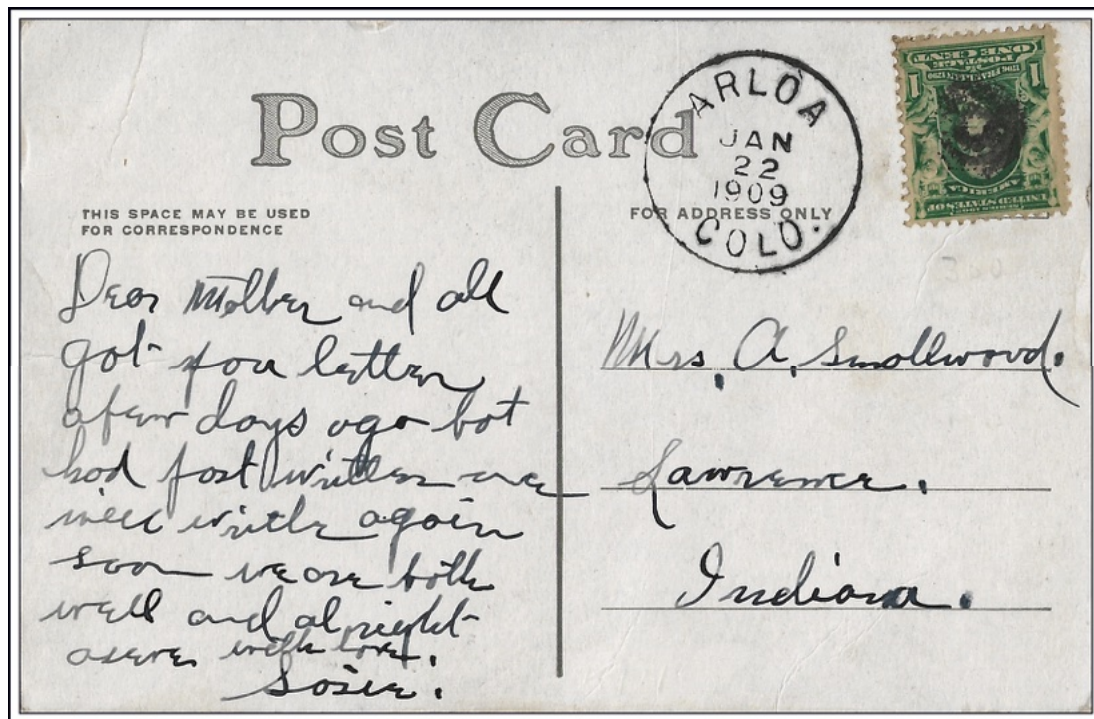 Post Card
ARLOA
JAN
22
1909
COLO.
ONE CENT
POSTAGE
1 1
UNITED STATES OF
AMERICA
THIS SPACE MAY BE USED
FOR CORRESPONDENCE
FOR ADDRESS ONLY
Dear Mother and all
got you letter
a few days ago bot
had just written
well write again
soon we are both
well and alright
as ever with love.
Sosie.
Mrs. A. Smallwood.
Lawrence.
Indiana.